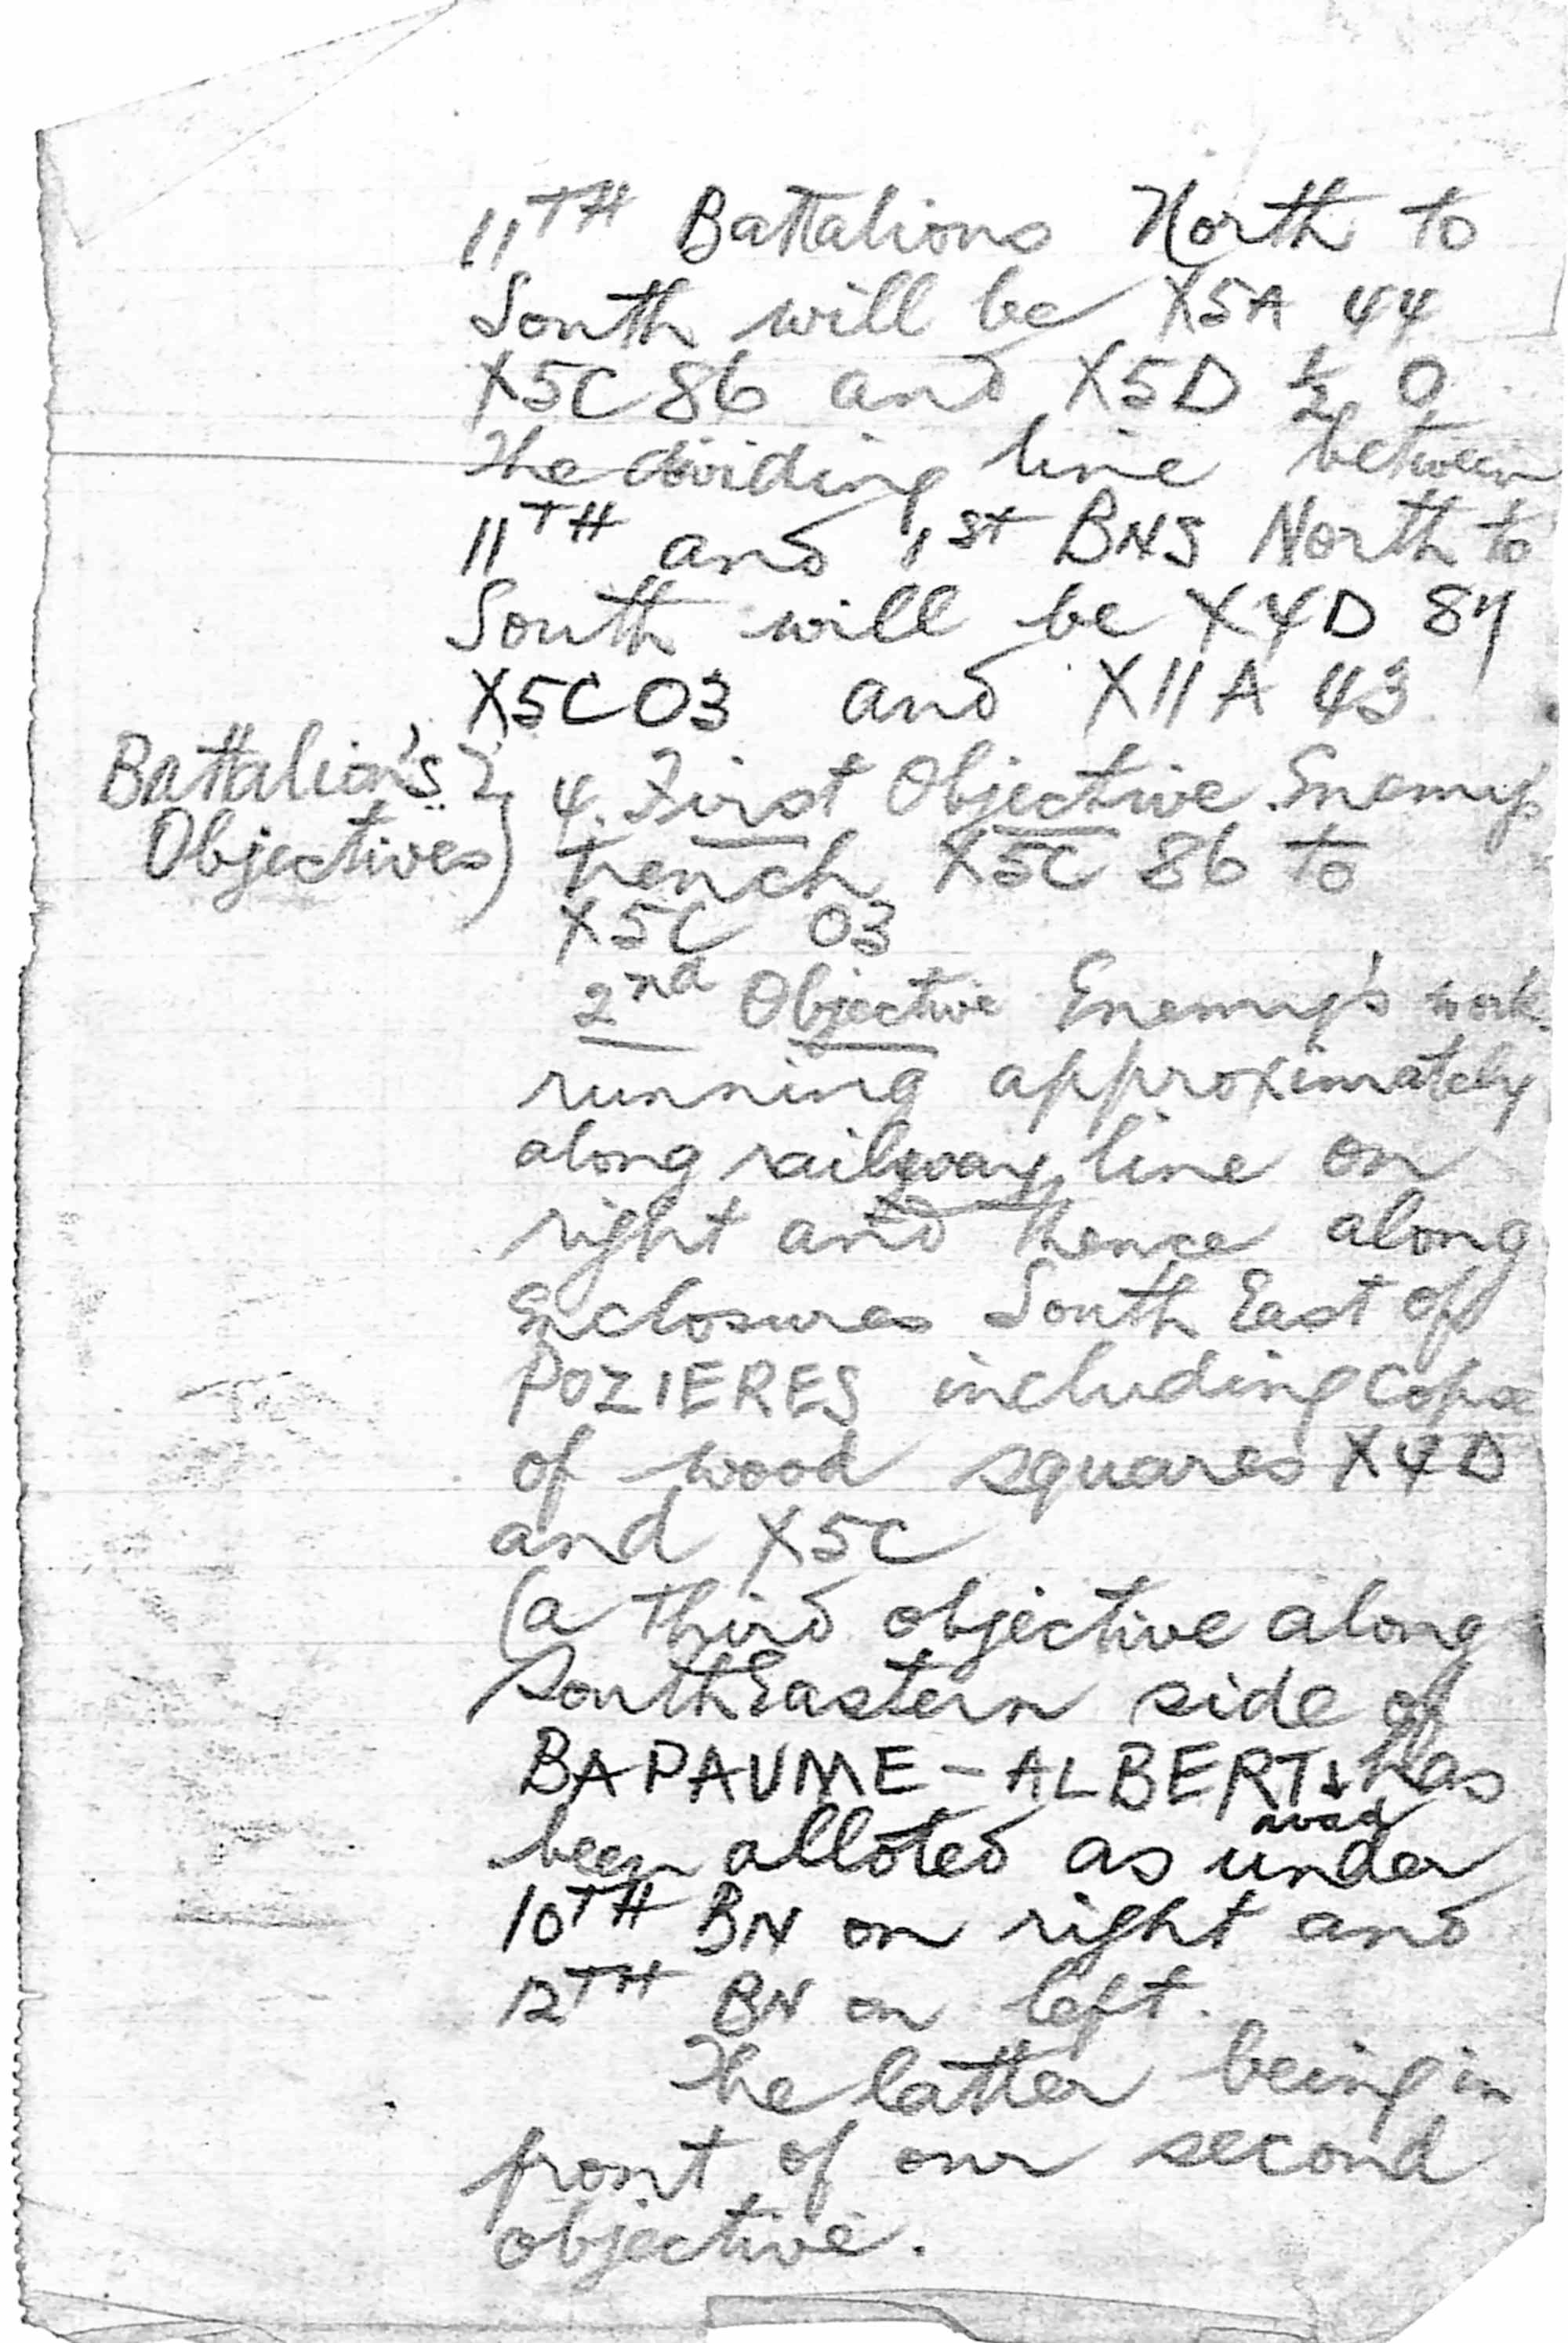 11TH Battalions North to
South will be X5A 44
X5C 86 and X5D ½ 0
The dividing line between
11TH and 1st BNS North to
South will be X4D 84
X5C 03 and X11A 43
Battalion's
Objectives)
4. First Objective. Enemy's
trench X5C 86 to
X5C 03
2nd Objective Enemy's work
running approximately
along railway line on
right and thence along
Enclosures South East of
POZIERES including copse
of wood squares X4D
and X5C
(a third objective along
South Eastern side of
BAPAUME - ALBERT has
road
been alloted as under
10TH BN on right and
12TH BN on left.
The latter being in
front of our second
objective.